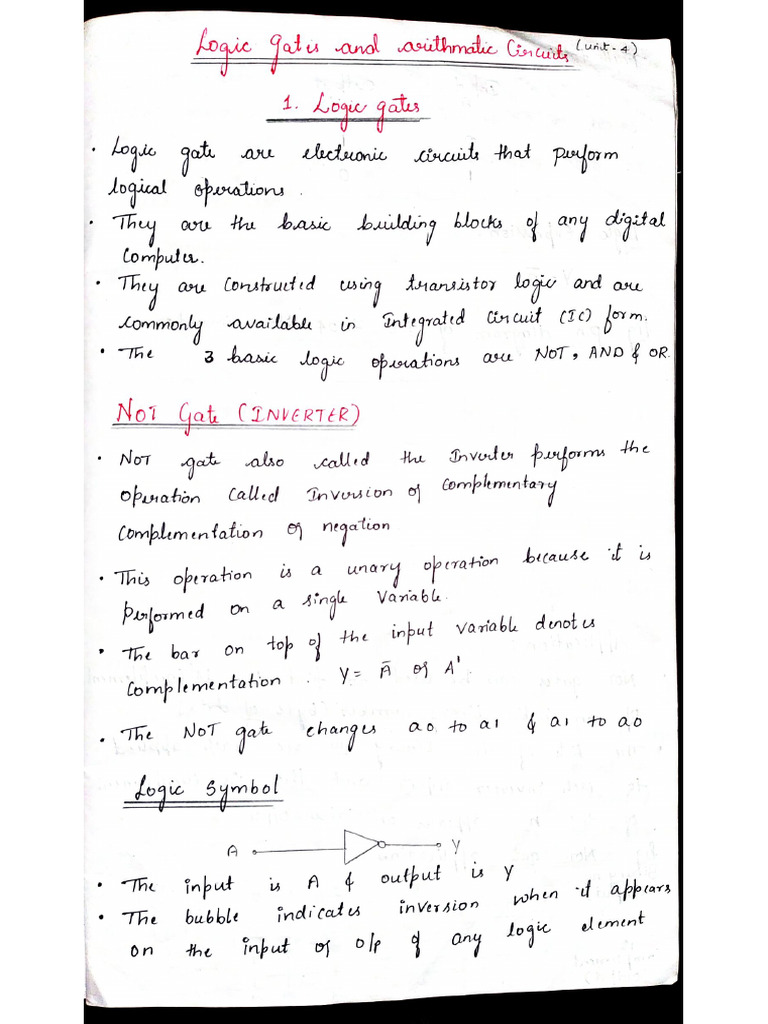 Logic gates and arithmatic Circuits (unit-4)
1. Logic gates
• Logic gate are electronic circuits that perform
logical operations.
• They are the basic building blocks of any digital
Computer.
• They are Constructed using transistor logic and are
commonly available in Integrated Circuit (IC) form.
• The 3 basic logic operations are NOT, AND & OR.
NOT Gate (INVERTER)
• NOT gate also called the Inverter performs the
operation Called Inversion or Complementary
Complementation or negation
• This operation is a unary operation because it is
performed on a single Variable.
• The bar on top of the input variable denotes
Complementation. Y = Ā or A'
• The NOT gate changes a 0 to a 1 & a 1 to a 0
Logic Symbol
A Y
• The input is A & output is Y
• The bubble indicates inversion when it appears
on the input or o/p of any logic element